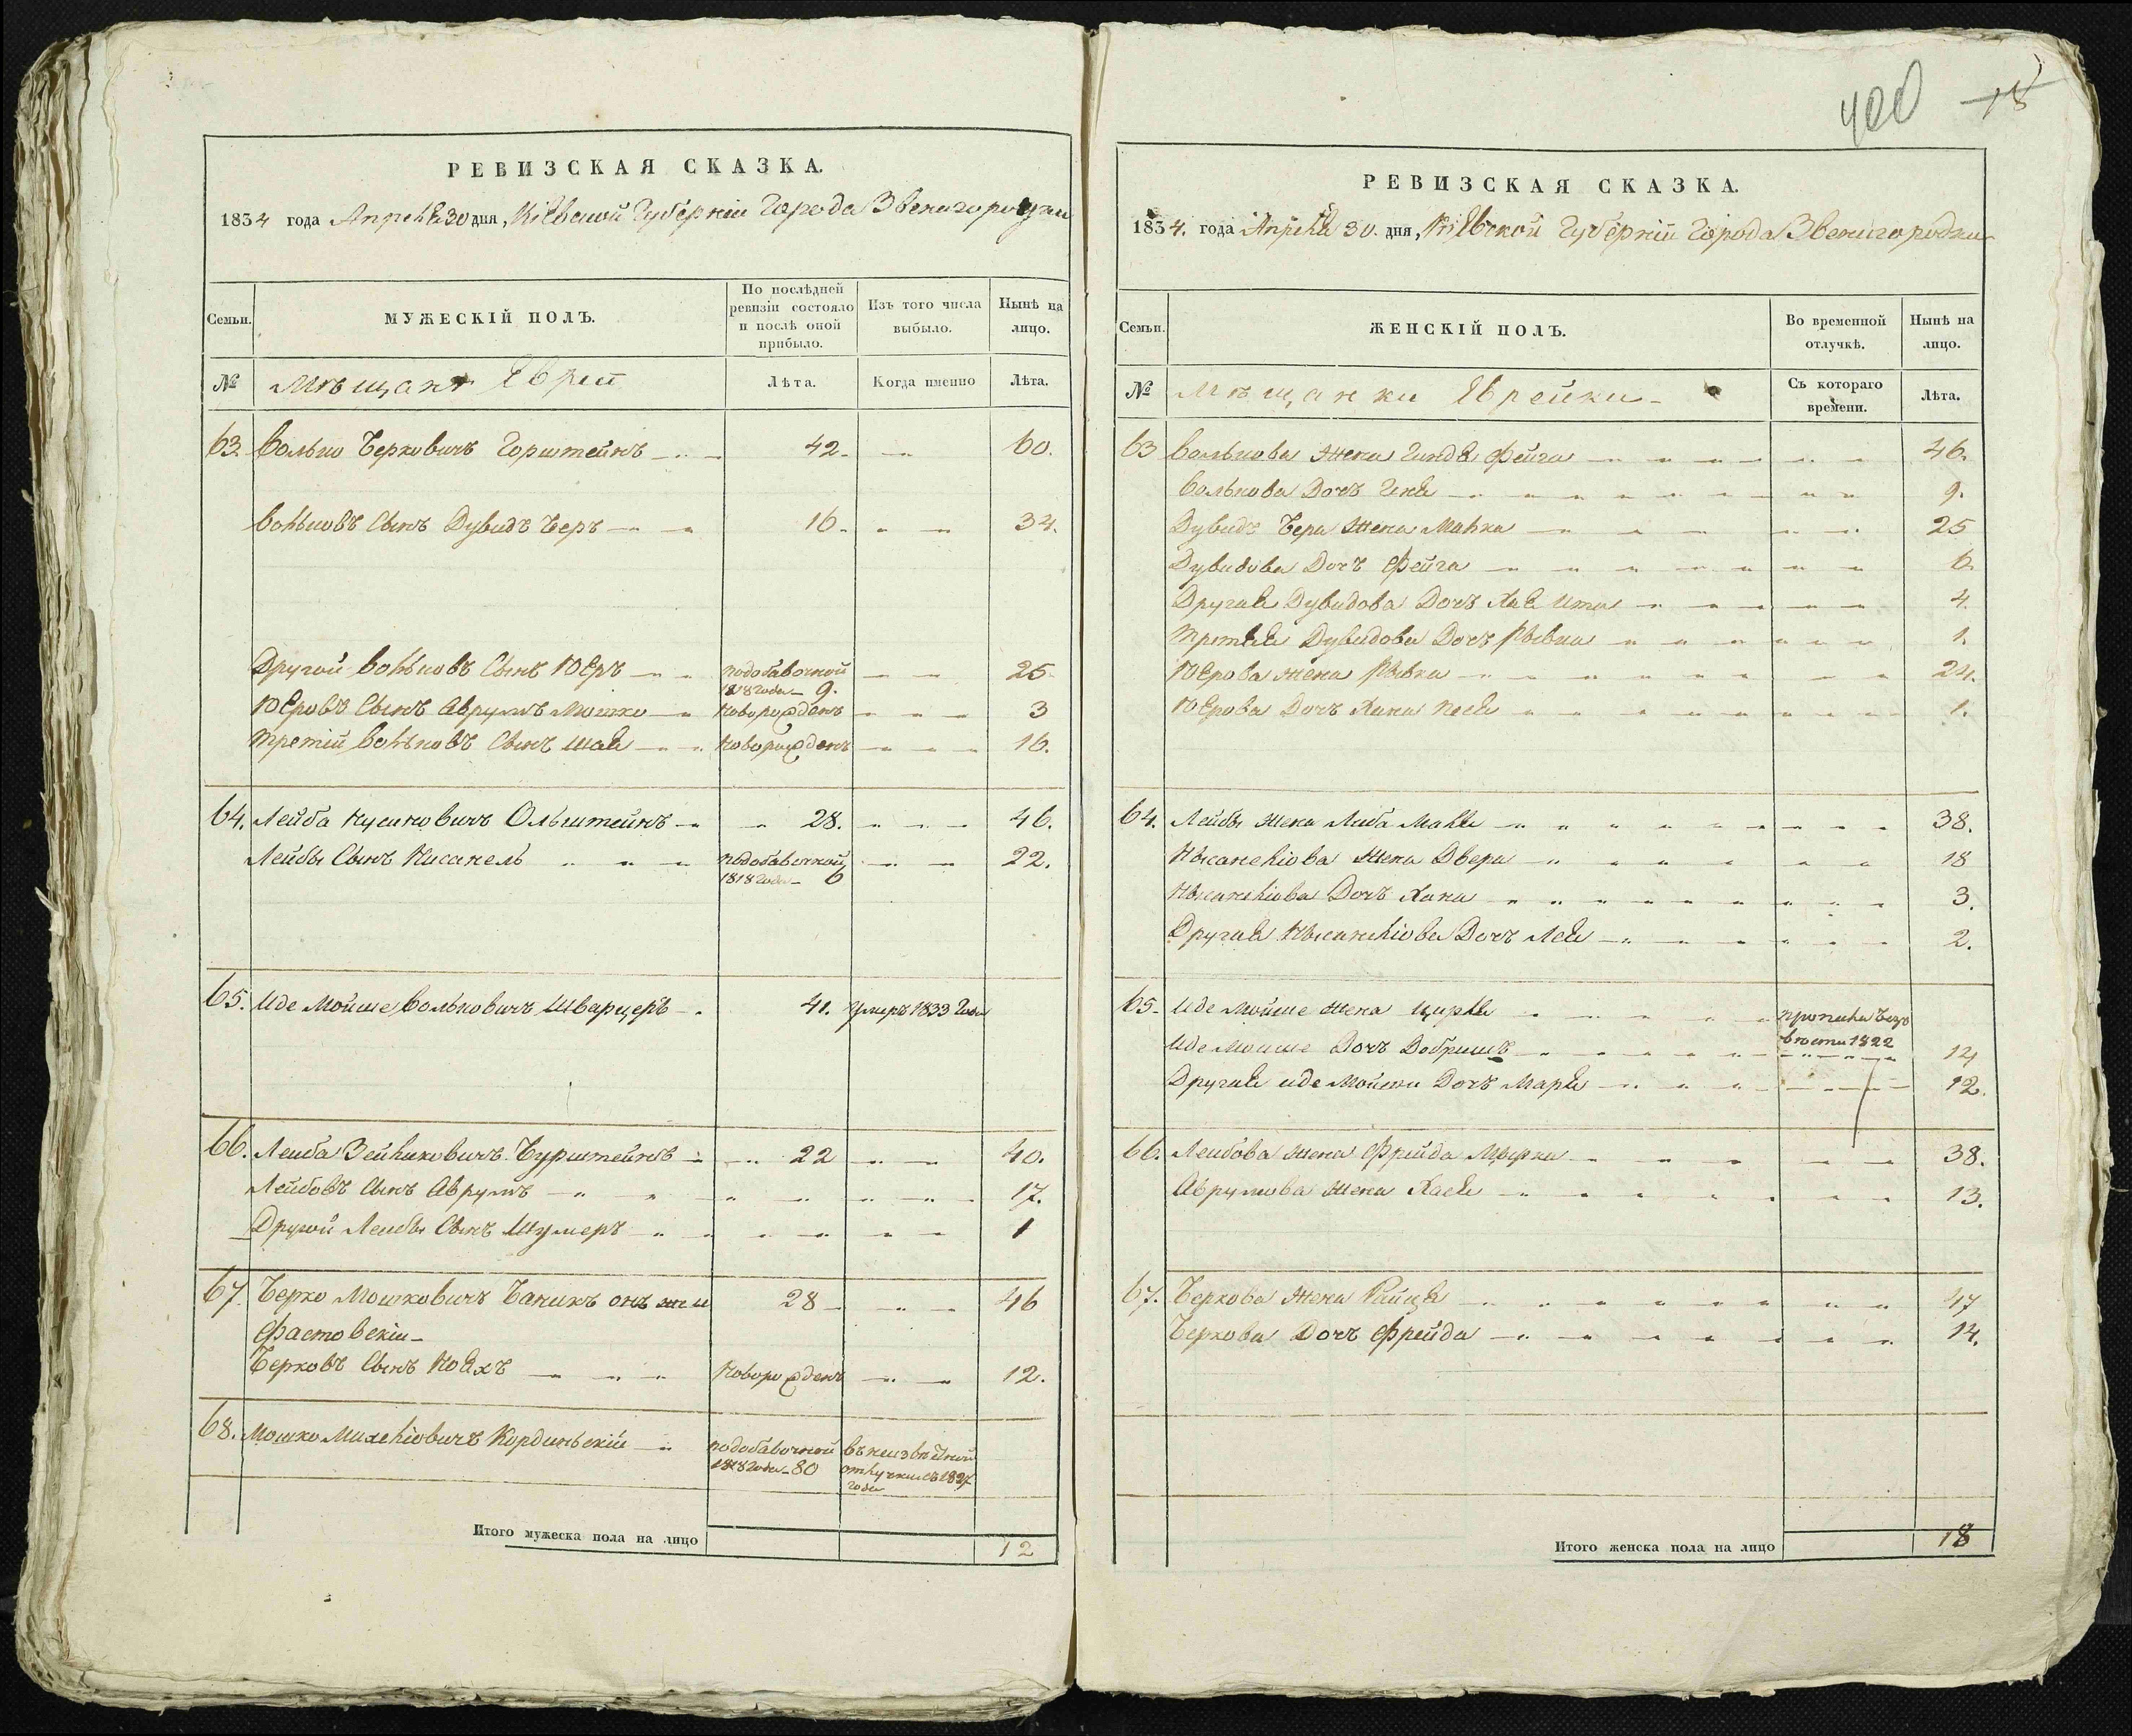 400 18
РЕВИЗСКАЯ СКАЗКА.
1834 года Апреля 30 дня, Кіевской Губерніи Города Звенигородки
Семьи. МУЖЕСКІЙ ПОЛЪ. По послѣдней ревизіи состояло и послѣ оной прибыло. Изъ того числа выбыло. Нынѣ на лицо.
№ Мѣщанъ Еврей Лѣта. Когда именно Лѣта.
63. Волько Берковичъ Горштейнъ 42. 60.
Вольковъ Сынъ Дувидъ Беръ 16. 34.
Другой Вольковъ Сынъ Юеръ подобавочной 1818 года 9. 25.
Юеровъ Сынъ Аврумъ Мошко новорожденъ 3
Третій Вольковъ Сынъ Шая новорожденъ 16.
64. Лейба Нусиновичъ Ольштейнъ 28. 46.
Лейбы Сынъ Нисанель подобавочной 1818 года 6 22.
65. Иде Мойше Вольковичъ Шварцеръ 41. умеръ 1833 года
66. Лейба Зейликовичъ Бурштейнъ 22 40.
Лейбовъ Сынъ Аврумъ 17.
Другой Лейбы Сынъ Шумеръ 1
67. Берко Мошковичъ Баникъ онъ же и 28 46
Фастовскій
Берковъ Сынъ Нояхъ новорожденъ 12.
68. Мошко Михелiовичъ Кординьскій подобавочной 1818 года 80 въ неизвѣстной отлучки съ 1827 года
Итого мужеска пола на лицо 12
РЕВИЗСКАЯ СКАЗКА.
1834. года Апреля 30. дня, Кіевской Губерніи Города Звенигородки
Семьи. ЖЕНСКІЙ ПОЛЪ. Во временной отлучкѣ. Нынѣ на лицо.
№ Мѣщанки Еврейки Съ котораго времени. Лѣта.
63 Волькова жена Гинда Фейга 46.
Волькова Дочъ Геня 9.
Дувидъ Бера жена Малка 25
Дувидова Дочъ Фейга 6.
Другая Дувидова Дочъ Хая Ита 4.
Третья Дувидова Дочъ Рывка 1.
Юерова жена Рывка 24.
Юерова Дочъ Хана Песя 1.
64. Лейбы жена Либа Маля 38.
Нысанеліова жена Двера 18
Нысанеліова Дочъ Хана 3.
Другая Нысанеліова Дочъ Лея 2.
65. Иде Мойше жена Цирля пропала безъ вѣсти 1822
Иде Мойше Дочъ Добришъ 14
Другая иде Мойши Дочъ Маря 12.
66. Лейбова жена Фрейда Мирка 38.
Аврумова жена Хася 13.
67. Беркова жена Райця 47
Беркова Дочъ Фрейда 14.
Итого женска пола на лицо 18